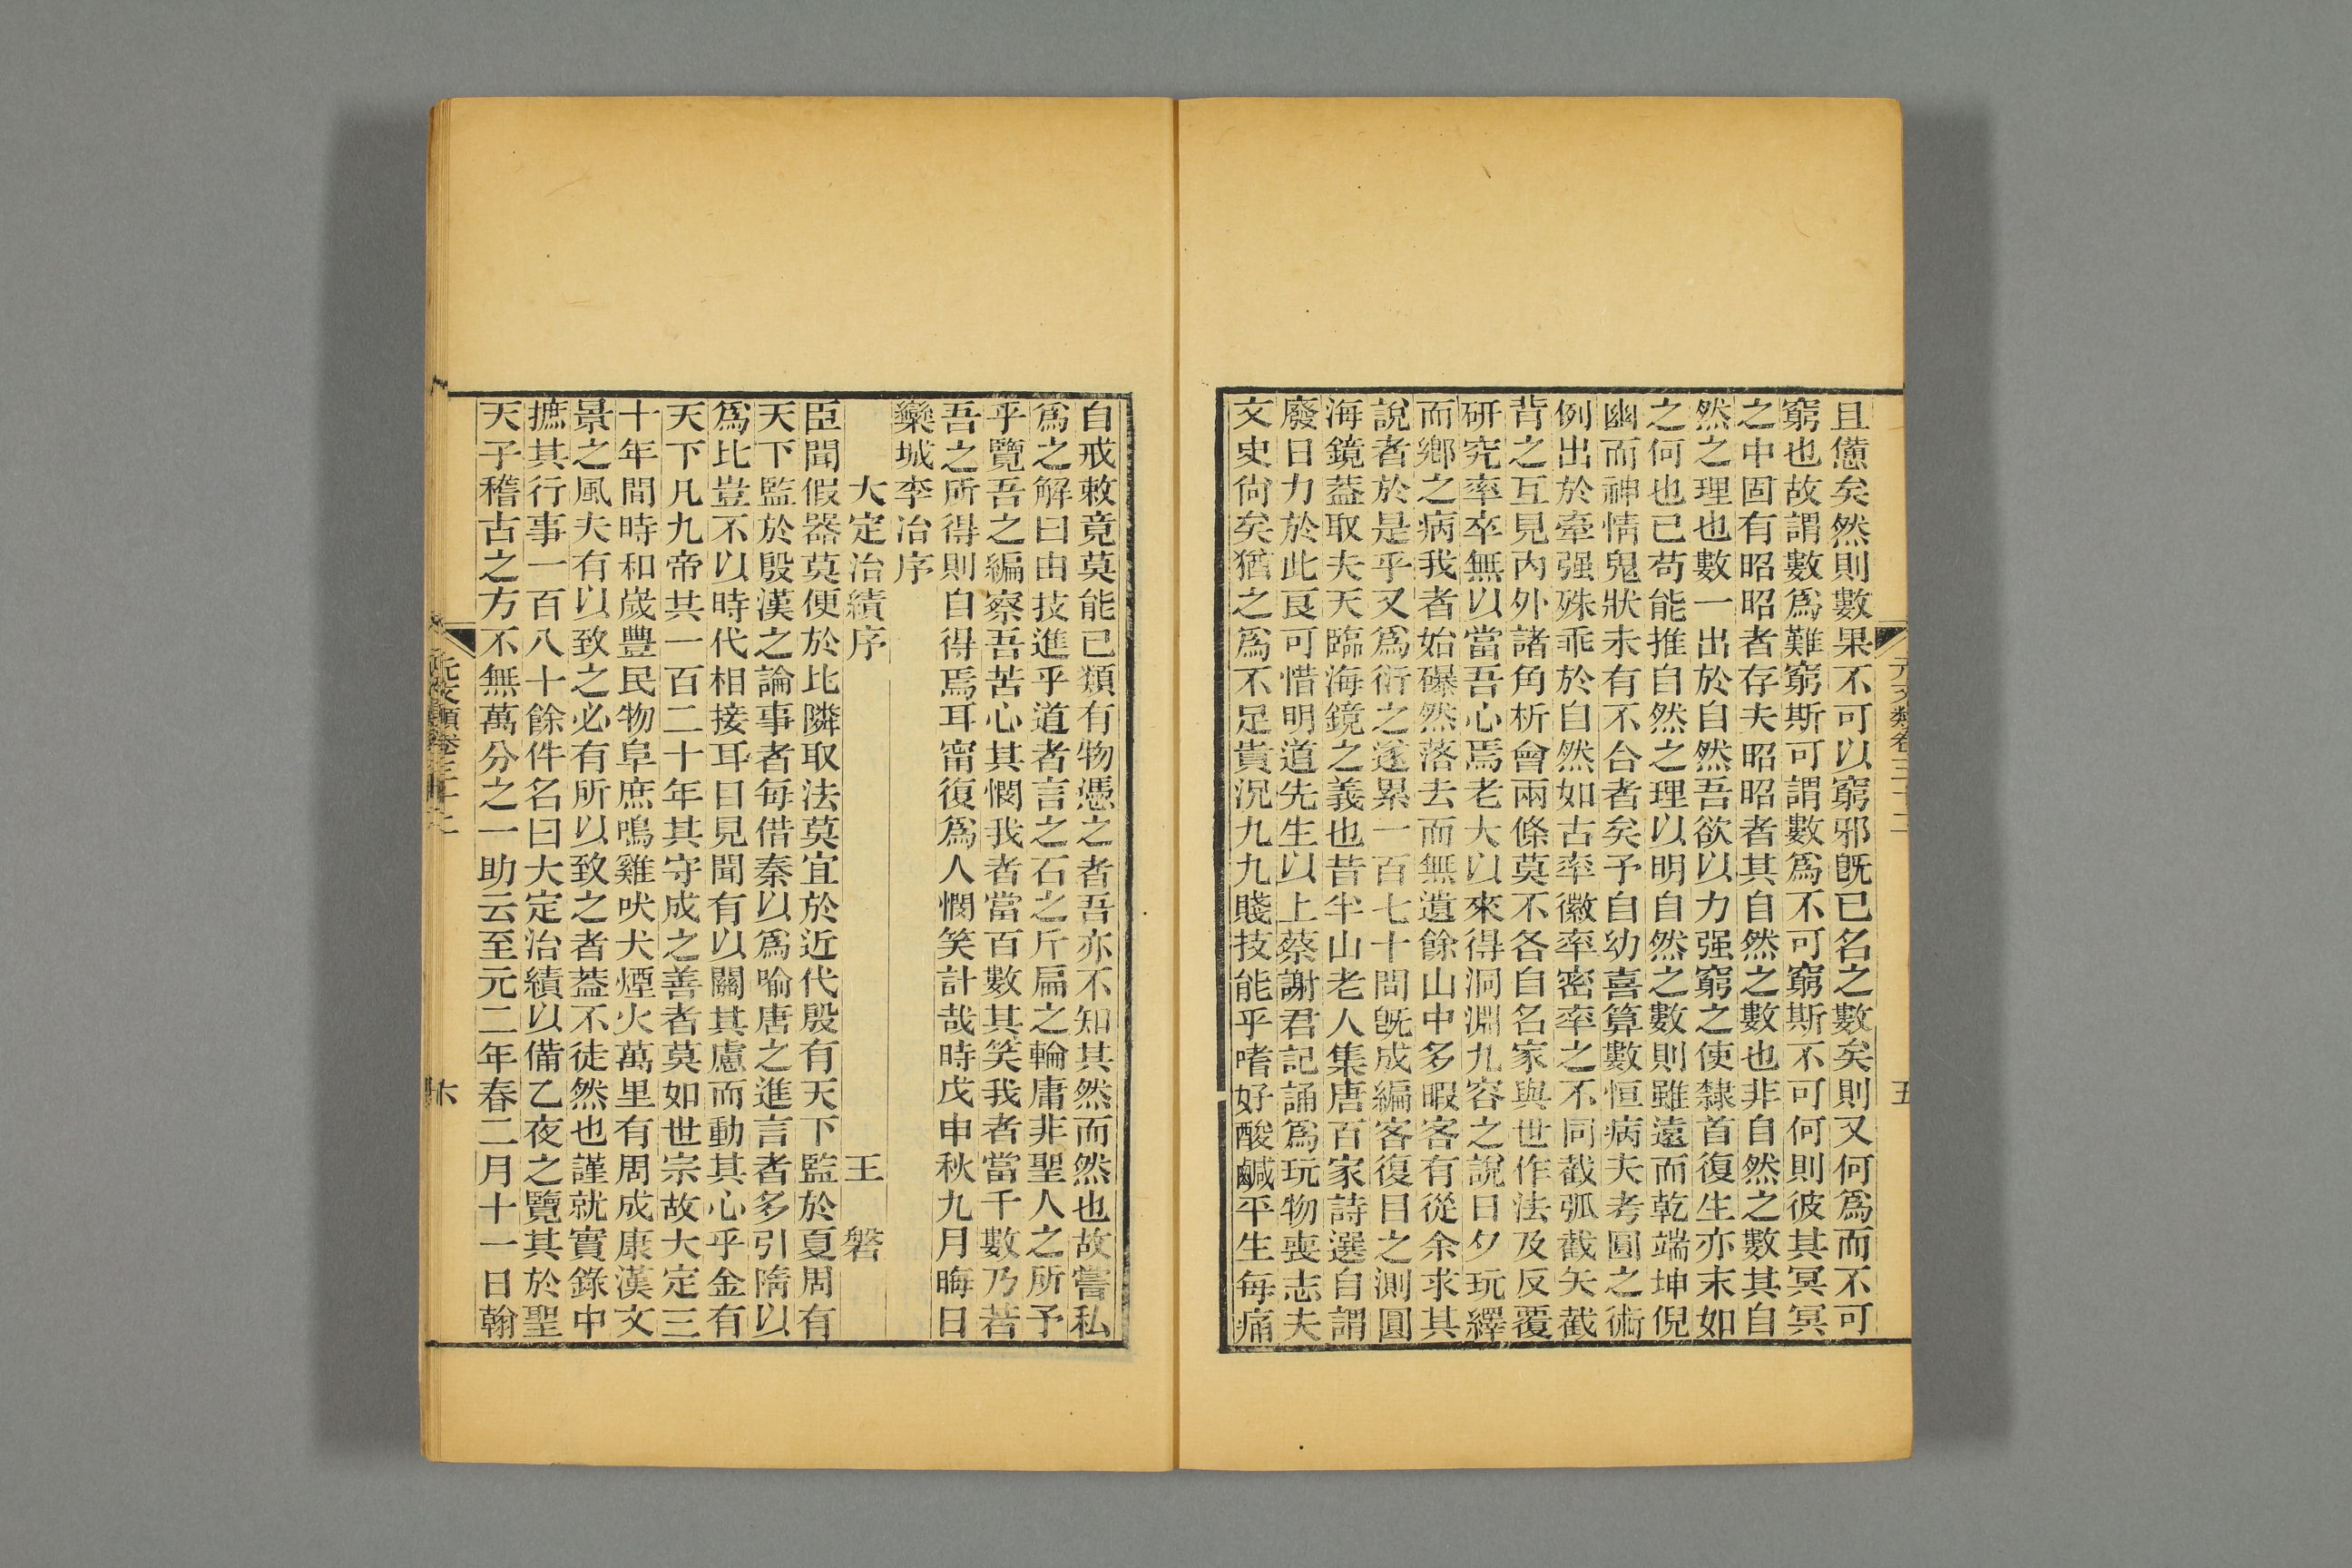 元文類卷三十二
五
且憊矣然則數果不可以窮邪旣已名之數矣則又何爲而不可
窮也故謂數爲難窮斯可謂數爲不可窮斯不可何則彼其冥冥
之中固有昭昭者存夫昭昭者其自然之數也非自然之數其自
然之理也數一出於自然吾欲以力强窮之使隸首復生亦末如
之何也已苟能推自然之理以明自然之數則雖遠而乾端坤倪
幽而神情鬼狀未有不合者矣予自幼喜算數恒病夫考圓之術
例出於牽强殊乖於自然如古率徽率密率之不同截弧截矢截
背之互見内外諸角析會兩條莫不各自名家與世作法及反覆
研究率卒無以當吾心焉老大以來得洞淵九容之說日夕玩繹
而鄉之病我者始礫然落去而無遺餘山中多暇客有從余求其
說者於是乎又爲衍之遂累一百七十問旣成編客復目之測圓
海鏡蓋取夫天臨海鏡之義也昔半山老人集唐百家詩選自謂
廢日力於此良可惜明道先生以上蔡謝君記誦爲玩物喪志夫
文史尙矣猶之爲不足貴況九九賤技能乎嗜好酸鹹平生每痛
自戒敕竟莫能已類有物憑之者吾亦不知其然而然也故嘗私
爲之解曰由技進乎道者言之石之斤扁之輪庸非聖人之所予
乎覽吾之編察吾苦心其憫我者當百數其笑我者當千數乃若
吾之所得則自得焉耳甯復爲人憫笑計哉時戊申秋九月晦日
欒城李冶序
大定治績序　王磐
臣聞假器莫便於比隣取法莫宜於近代殷有天下監於夏周有
天下監於殷漢之論事者每借秦以爲喻唐之進言者多引隋以
爲比豈不以時代相接耳目見聞有以關其慮而動其心乎金有
天下凡九帝共一百二十年其守成之善者莫如世宗故大定三
十年間時和歲豐民物阜庶鳴雞吠犬煙火萬里有周成康漢文
景之風夫有以致之必有所以致之者蓋不徒然也謹就實錄中
摭其行事一百八十餘件名曰大定治績以備乙夜之覽其於聖
天子稽古之方不無萬分之一助云至元二年春二月十一日翰